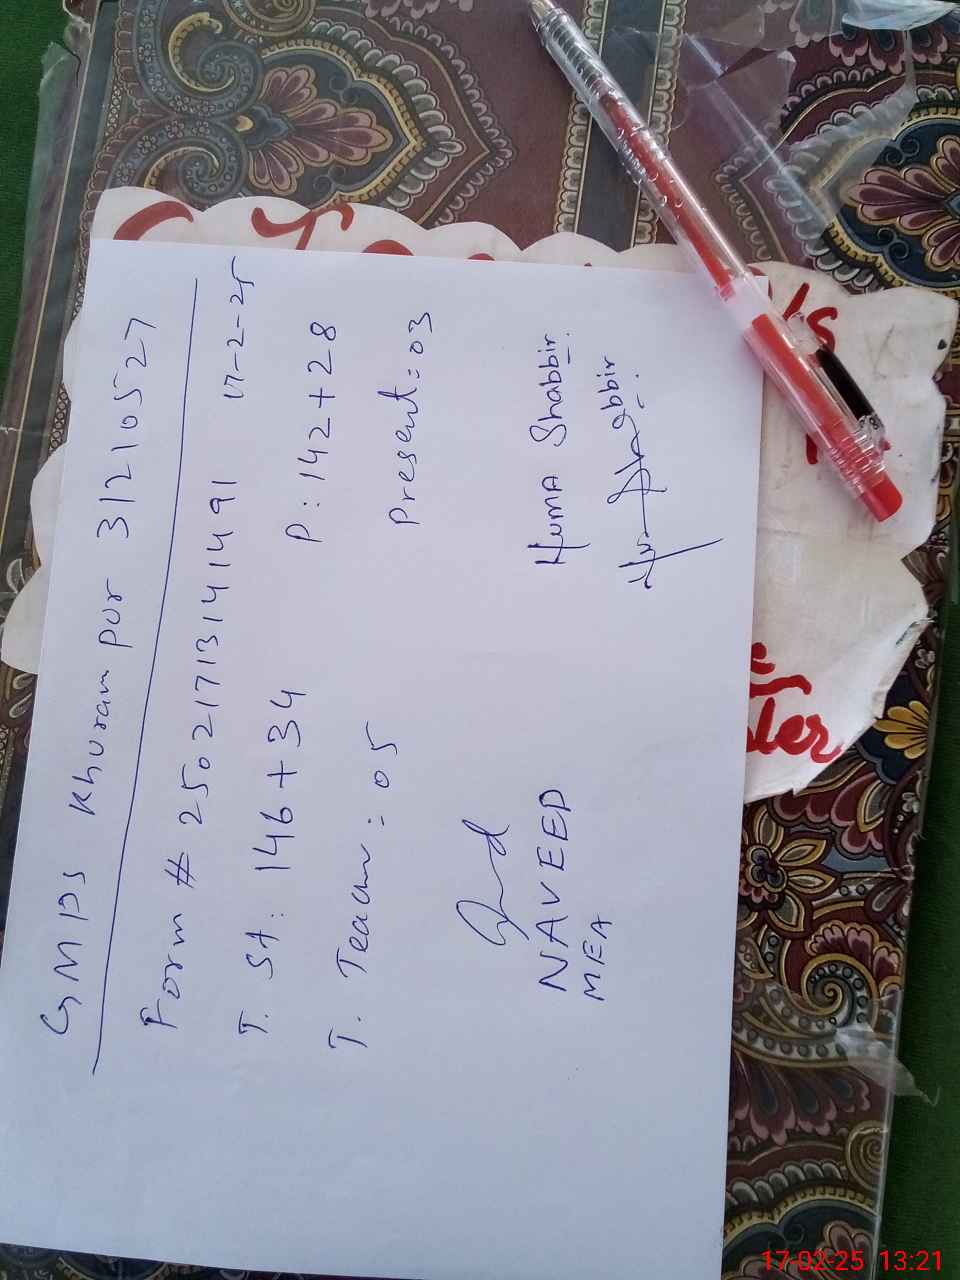 GMPS Khurampur 31210527
Form # 25021713141491 17-2-25
T. St: 146+34 P: 142+28
T. Teach: 05 Present: 03
Huma Shabbir
NAVEED
MEA
17-02-25 13:21